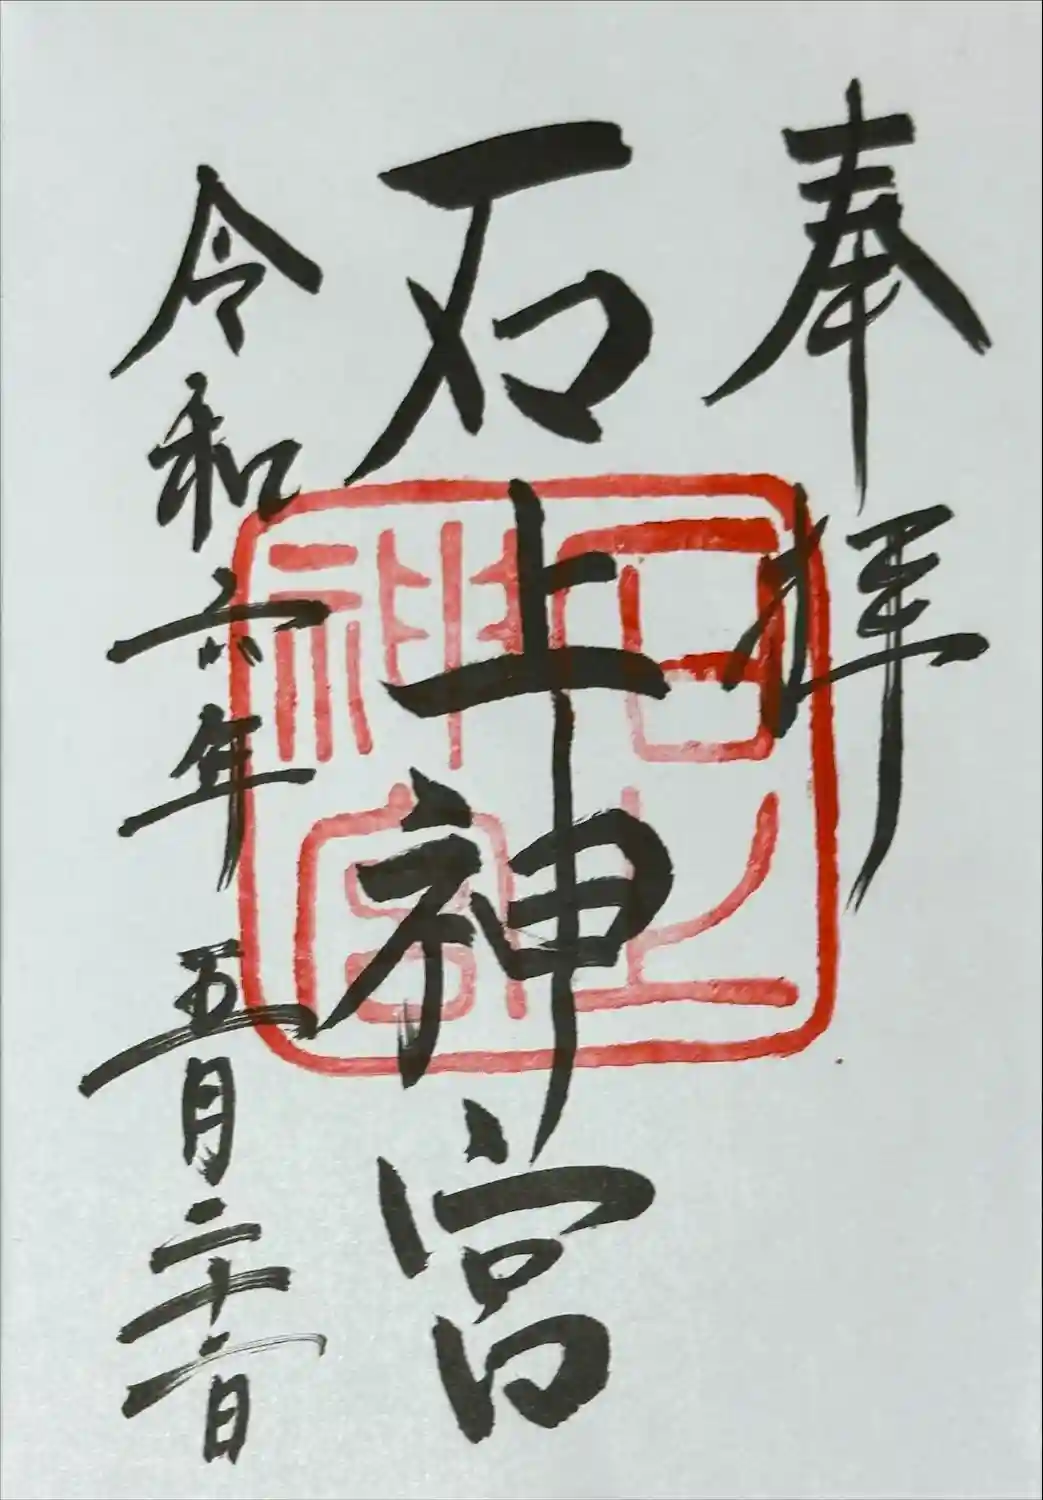 奉拝
石上神宮
令和六年五月二十二日
石上
神宮